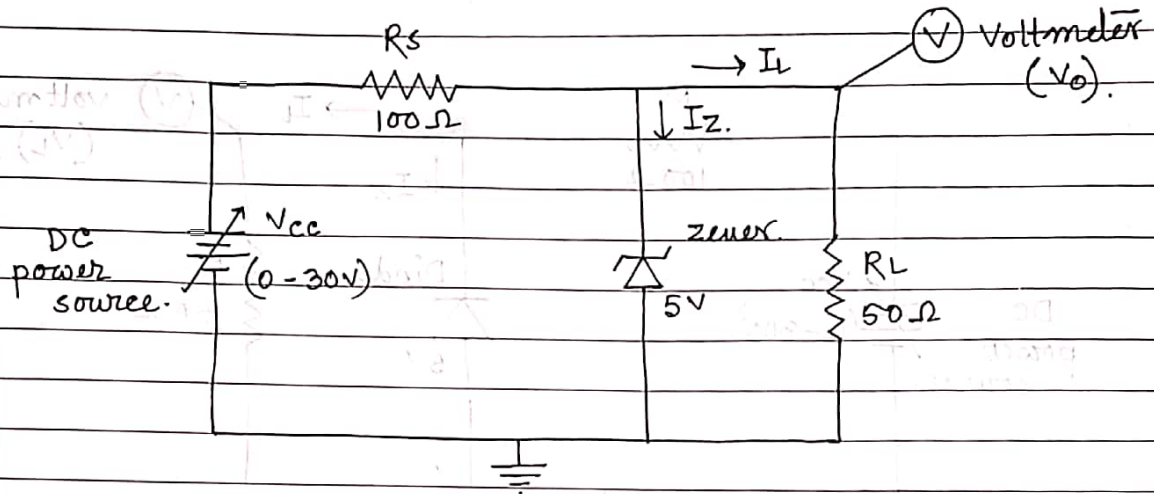 Rs
100Ω
→ IL
↓ Iz.
V Voltmeter
(Vo).
DC
power
source.
Vcc
(0-30V)
zener.
5V
RL
50Ω